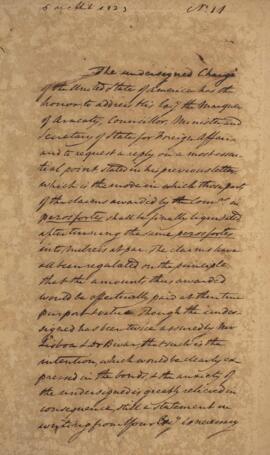 1823
Nº 11
The undersigned Chargé
of the United States of America has the
honor to address His Excy the Marquez
of Aracaty, Councillor, Minister and
Secretary of State for Foreign Affairs
and to request a reply on a most essen
tial point stated in his previous letter
which is the mode in which those part
of the claims awarded by the Comrs in
pezos fortes shall be finally liquidated
after turning the same pezos fortes
into milreis at par. The claims have
all been regulated on the principle
that the amounts thus awarded
would be effectually paid at their true
purport & value. Though the under
signed has been twice assured by Mr
Lisboa & that such is the
intention, which would be clearly ex
pressed in the bonds & the anxiety of
the undersigned is greatly relieved in
consequence, still a statement in
writing from Your Excy is necessary